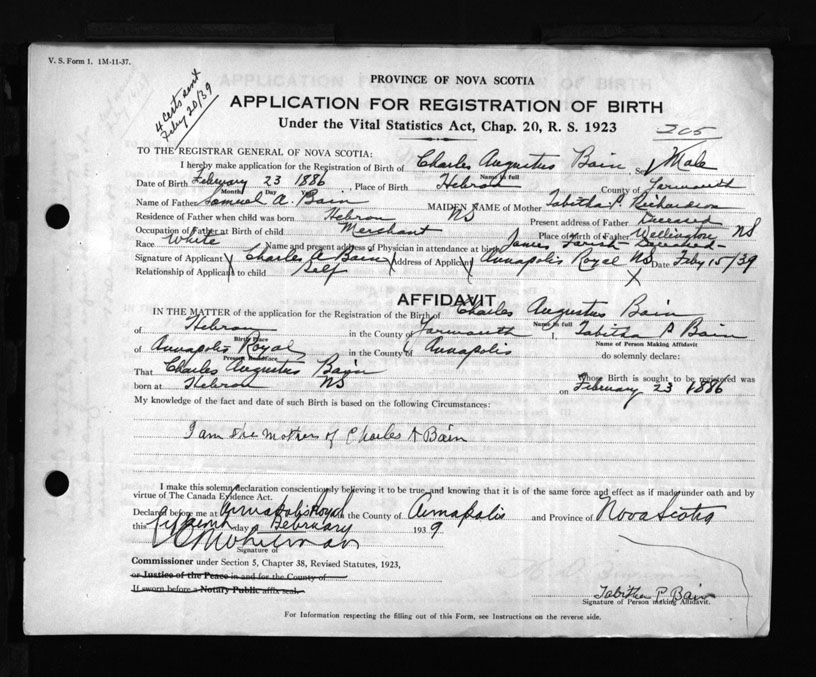 V. S. Form 1. 1M-11-37.
4 certs sent
Feby 20/39
PROVINCE OF NOVA SCOTIA
APPLICATION FOR REGISTRATION OF BIRTH
Under the Vital Statistics Act, Chap. 20, R. S. 1923
205
TO THE REGISTRAR GENERAL OF NOVA SCOTIA:
I hereby make application for the Registration of Birth of Charles Augustus Bain, Sex Male
Name in full
Date of Birth February 23 1886, Place of Birth Hebron County of Yarmouth
Month Day Year
Name of Father Samuel A. Bain MAIDEN NAME of Mother Tabitha P. Richardson
Residence of Father when child was born Hebron NS Present address of Father Deceased
Occupation of Father at Birth of child Merchant Place of Birth of Father Wellington NS
Race White Name and present address of Physician in attendance at birth James Farish - Deceased -
Signature of Applicant X Charles A Bain X Address of Applicant X Annapolis Royal NS Date Feby 15/39
Relationship of Applicant to child Self X
AFFIDAVIT
IN THE MATTER of the application for the Registration of the Birth of Charles Augustus Bain
Name in full
of Hebron in the County of Yarmouth I, Tabitha P Bain
Birth Place Name of Person Making Affidavit
of Annapolis Royal in the County of Annapolis do solemnly declare:
Present Residence
That Charles Augustus Bain Whose Birth is sought to be registered was
born at Hebron NS on February 23 1886
My knowledge of the fact and date of such Birth is based on the following Circumstances:
I am the mother of Charles A Bain
I make this solemn declaration conscientiously believing it to be true, and knowing that it is of the same force and effect as if made under oath and by
virtue of The Canada Evidence Act.
Declared before me at Annapolis Royal in the County of Annapolis and Province of Nova Scotia
this fifteenth day of February 1939
Signature of
Commissioner under Section 5, Chapter 38, Revised Statutes, 1923,
or Justices of the Peace in and for the County of
If sworn before a Notary Public affix seal.
Tabitha P Bain
Signature of Person making Affidavit.
For Information respecting the filling out of this Form, see Instructions on the reverse side.